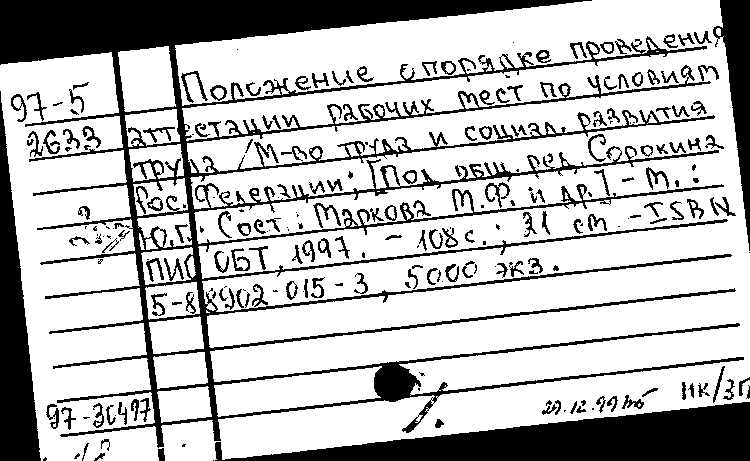 97-5
2633
Положение о порядке проведения
аттестации рабочих мест по условиям
труда / М-во труда и социал. развития
Рос. Федерации; [Под общ. ред. Сорокина
Ю.Г.; Сост.: Маркова М.Ф. и др.]. - М.:
НИО ОБТ, 1997. - 108 с.; 21 cm. - ISBN
5-88902-015-3, 5000 экз.
97-30497
29.12.99 НК/ЗП